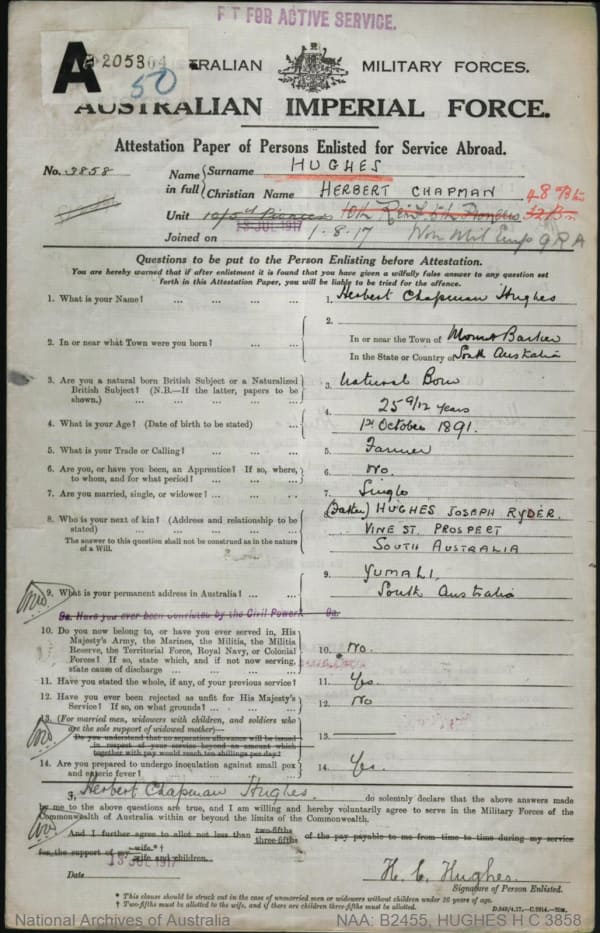 FIT FOR ACTIVE SERVICE.
A 205304
50
AUSTRALIAN MILITARY FORCES.
AUSTRALIAN IMPERIAL FORCE.
Attestation Paper of Persons Enlisted for Service Abroad.
No. 3858 Name in full { Surname HUGHES
Christian Name HERBERT CHAPMAN
48 Bn
Unit 10/5th Pioneers 10th Reinf. 5th Pioneers 32 Bn
Joined on 13 JUL 1917 1-8-17
Questions to be put to the Person Enlisting before Attestation.
You are hereby warned that if after enlistment it is found that you have given a wilfully false answer to any question set
forth in this Attestation Paper, you will be liable to be tried for the offence.
1. What is your Name? ... ... ... 1. Herbert Chapman Hughes
2. In or near what Town were you born? ... ... 2. In or near the Town of Mount Barker
In the State or Country of South Australia
3. Are you a natural born British Subject or a Naturalized
British Subject? (N.B.—If the latter, papers to be
shown.) ... ... ... ... 3. Natural Born
4. What is your Age? (Date of birth to be stated) ... 4. 25 9/12 years
1st October 1891.
5. What is your Trade or Calling? ... ... 5. Farmer
6. Are you, or have you been, an Apprentice? If so, where,
to whom, and for what period? ... ... ... 6. No.
7. Are you married, single, or widower? ... ... ... 7. Single
8. Who is your next of kin? (Address and relationship to be
stated) ... ... ... ... (Father) HUGHES JOSEPH RYDER.
The answer to this question shall not be construed as in the nature
of a Will. VINE ST. PROSPECT
SOUTH AUSTRALIA
9. What is your permanent address in Australia? ... ... 9. YUMALI,
South Australia
9a. Have you ever been convicted by the Civil Power? 9a.
10. Do you now belong to, or have you ever served in, His
Majesty's Army, the Marines, the Militia, the Militia
Reserve, the Territorial Force, Royal Navy, or Colonial
Forces? If so, state which, and if not now serving,
state cause of discharge ... ... ... 10. No.
11. Have you stated the whole, if any, of your previous service? 11. Yes.
12. Have you ever been rejected as unfit for His Majesty's
Service? If so, on what grounds? ... ... ... 12. No
13. (For married men, widowers with children, and soldiers who
are the sole support of widowed mother)—
Do you understand that no separation allowance will be issued
in respect of your service beyond an amount which
together with pay would reach ten shillings per day? 13.
14. Are you prepared to undergo inoculation against small pox
and enteric fever? ... ... ... 14. Yes.
I, Herbert Chapman Hughes. do solemnly declare that the above answers made
by me to the above questions are true, and I am willing and hereby voluntarily agree to serve in the Military Forces of the
Commonwealth of Australia within or beyond the limits of the Commonwealth.
And I further agree to allot not less than two-fifths three-fifths of the pay payable to me from time to time during my service
for the support of my wife.*† wife and children.
Date 13 JUL 1917
H. C. Hughes.
Signature of Person Enlisted.
* This clause should be struck out in the case of unmarried men or widowers without children under 16 years of age.
† Two-fifths must be allotted to the wife, and if there are children three-fifths must be allotted.
National Archives of Australia NAA: B2455, HUGHES H C 3858